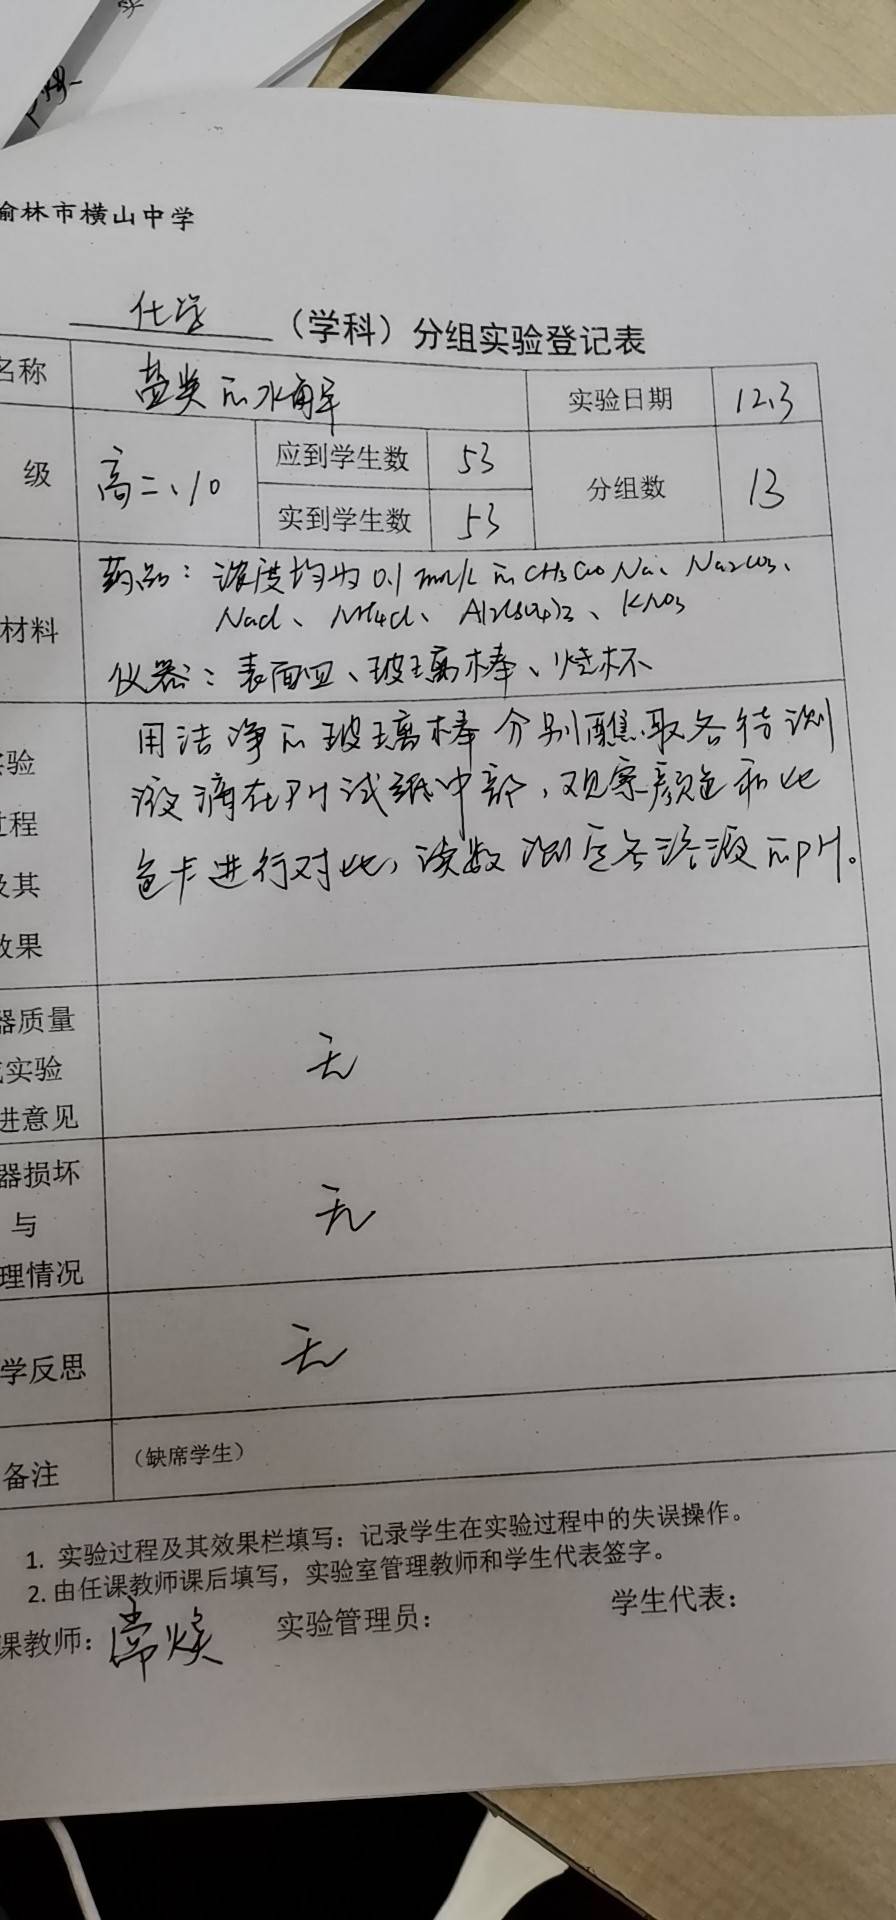 榆林市横山中学
化学（学科）分组实验登记表
名称 盐类的水解 实验日期 12.3
级 高二、10 应到学生数 53 分组数 13
实到学生数 53
材料 药品：浓度均为0.1mol/L的CH3COONa、Na2CO3、
NaCl、NH4Cl、Al2(SO4)3、KNO3
仪器：表面皿、玻璃棒、烧杯
实验 用洁净的玻璃棒分别蘸取各待测
过程 液滴在PH试纸中部，观察颜色和比
及其 色卡进行对比，读数测定各溶液的pH。
效果
器质量
实验 无
进意见
器损坏
与 无
理情况
学反思 无
备注 （缺席学生）
1. 实验过程及其效果栏填写：记录学生在实验过程中的失误操作。
2. 由任课教师课后填写，实验室管理教师和学生代表签字。
课教师：常焕 实验管理员： 学生代表：